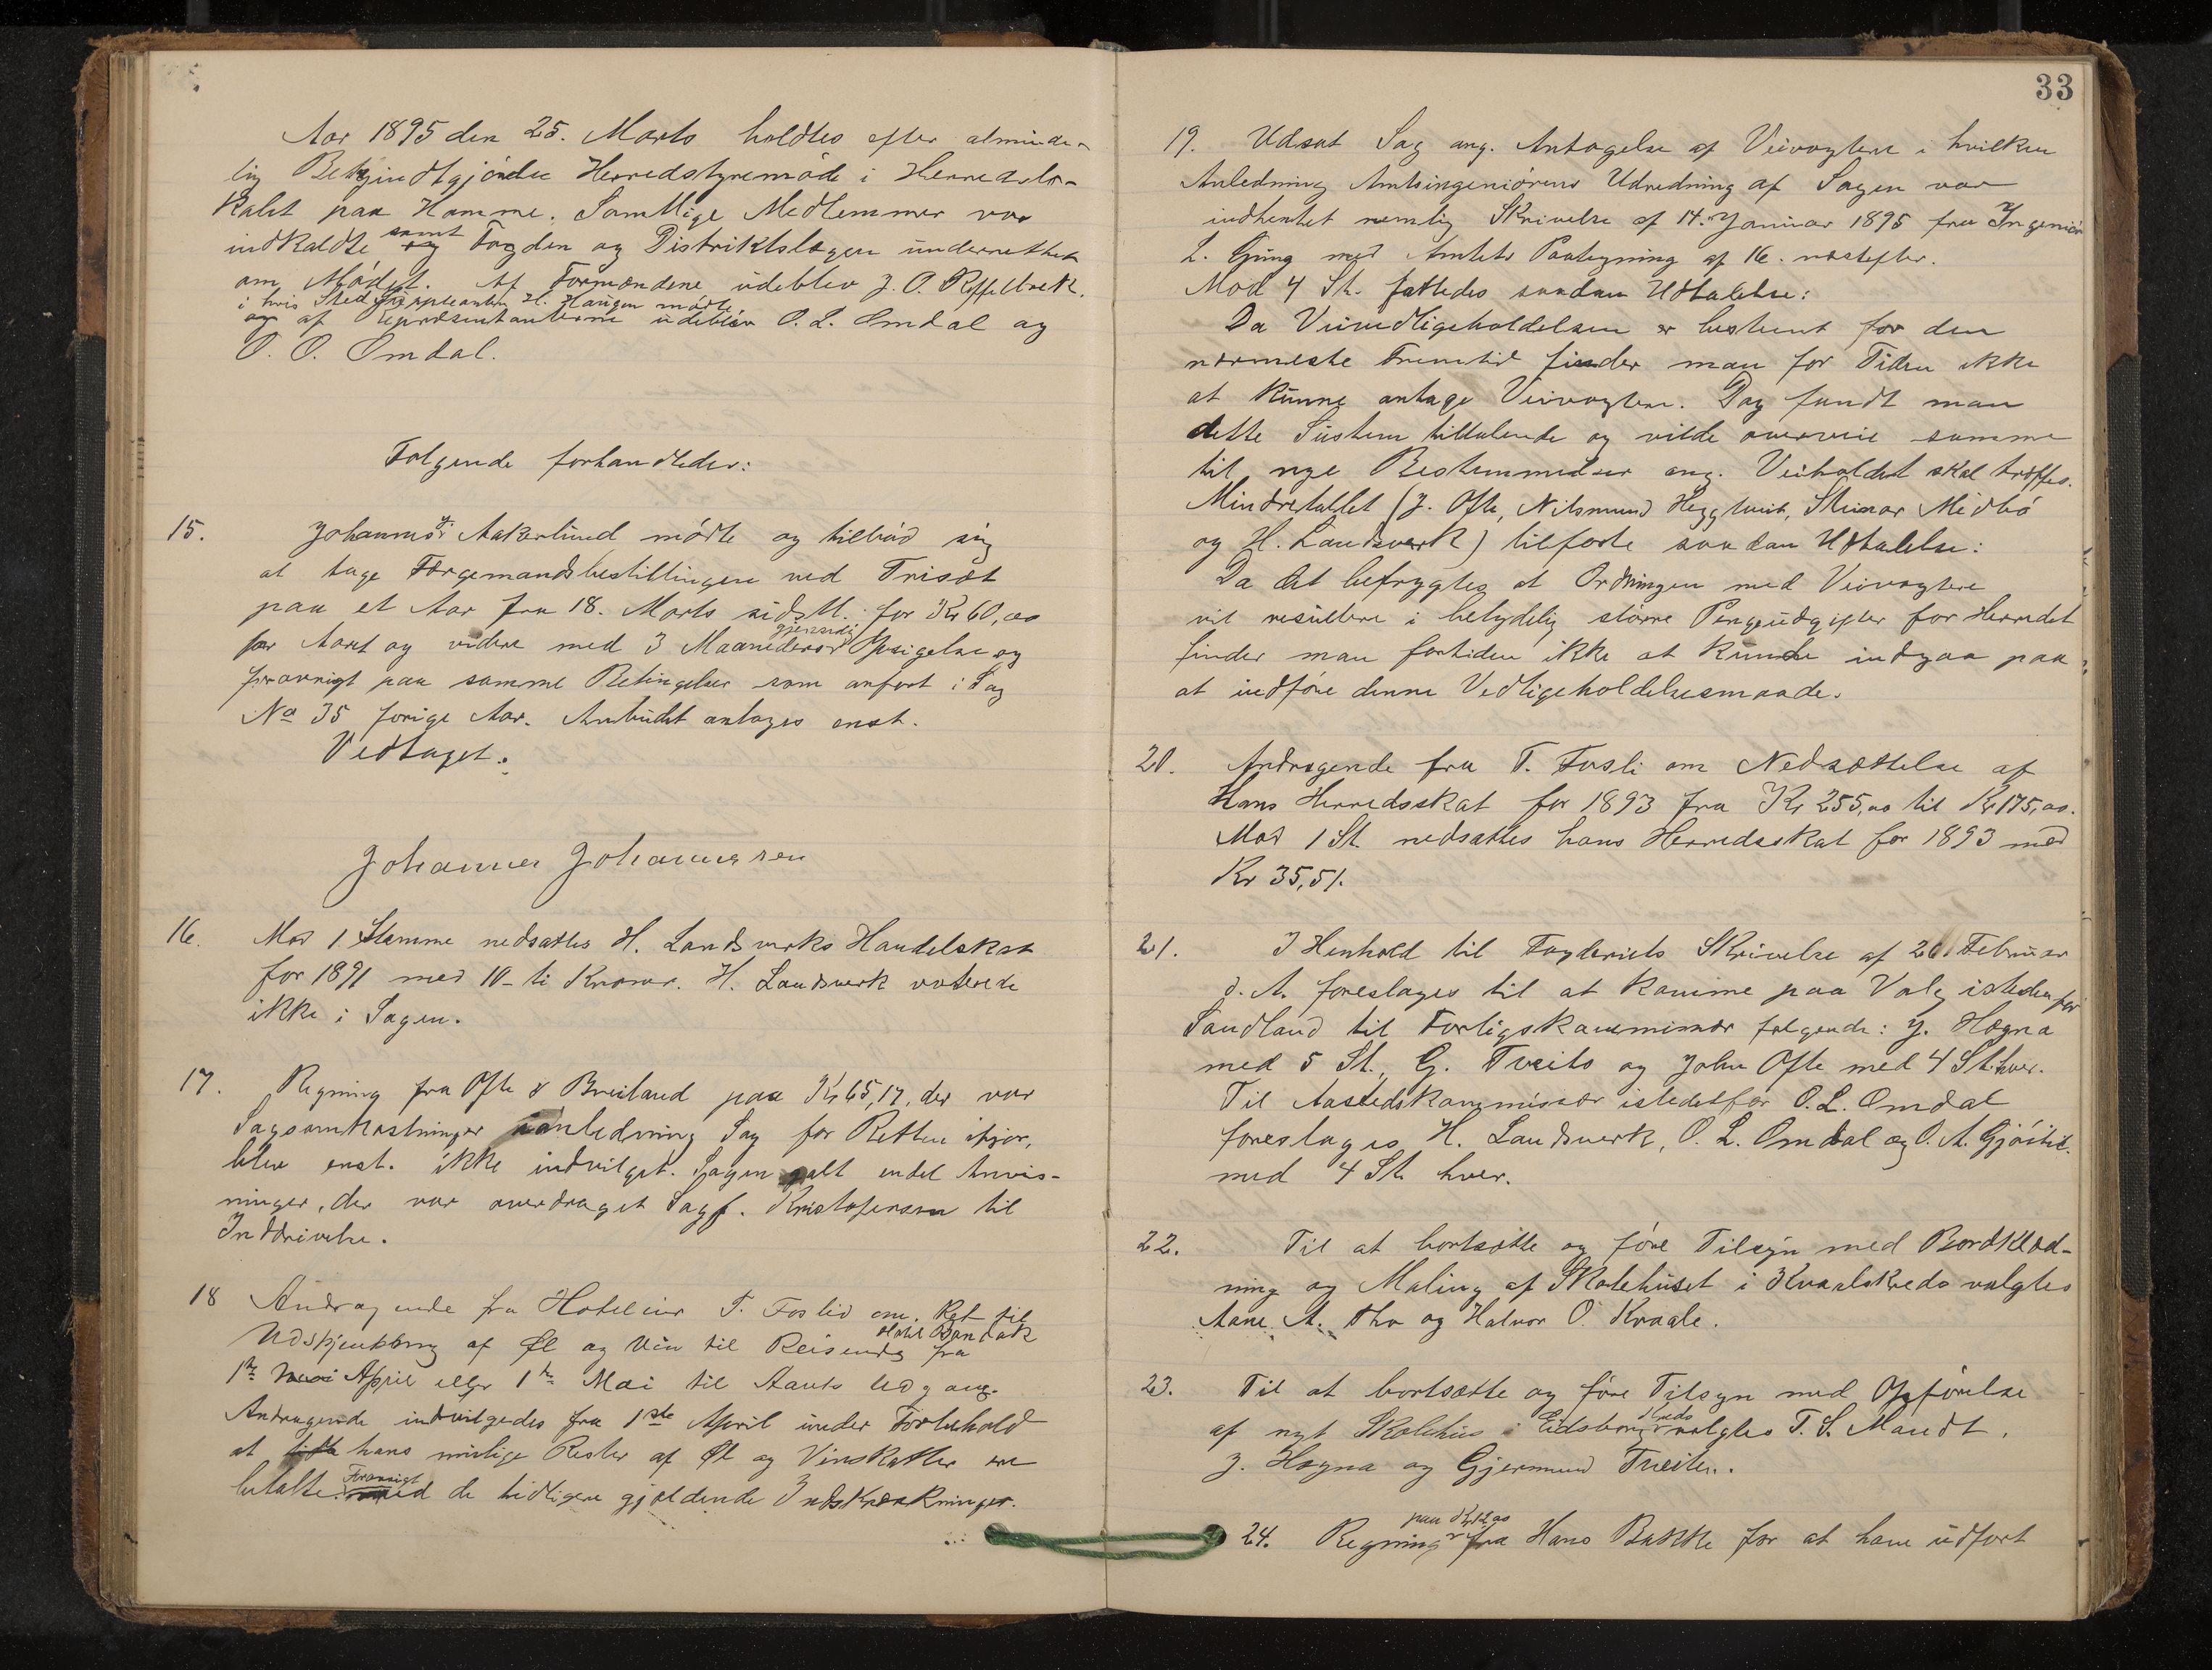 Aar 1895 den 25. Marts holdtes efter alminde-
lig Bekjendtgjörelse Herredstyremöde i Herredslo-
kalet paa Homme. Samtlige Medlemmer var
indkaldte samt Fogden og Distriktslægen underrettet
om Mödet. Af Formændene udeblev J. O.
i hvis Sted Suppleanten H. Haugen mödte
og af Repræsentanterne udeblev O. L. Omdal og
O. O. Omdal.
Følgende forhandledes:
15. Johannes Aakerlund mödte og tilböd sig
at tage Færgemandsbestillingen ved Trisæt
paa et Aar fra 18. Marts sidstl. for Kr 60,00
for Aaret og videre med 3 Maaneders gjensidig Opsigelse og
forøvrigt paa samme Betingelser som anført i Sag
No 35 forige Aar. Anbudet antages enst.
Vedtaget.
Johannes Johannesen
16. Mod 1 Stemme nedsattes H. Landsverks Handelskat
for 1891 med 10 - ti Kroner. H. Landsverk voterede
ikke i Sagen.
17. Regning fra Ofte & Breiland paa Kr 65,17, der var
Sagsomkostninger i anledning Sag for Retten ,
blev enst. ikke indvilget. Sagen galt endel Anvis-
ninger, der var overdraget Sagf. Kristofersen til
Inddrivelse.
18 Andragende fra Hoteleier T. Foslid om Ret til
Udskjenkning af Øl og Vin til Reisende fra Hotel Bandak
1ste Mai April eller 1ste Mai til Aarets Udgang.
Andragende indvilgedes fra 1ste April under Forbehold
at hans mulige Rester af Øl og Vinskatter er
betalte. Forøvrigt med de tidligere gjældende Indskrænkninger.
33
19. Udsat Sag ang. Antagelse af Veivogtere i hvilken
Anledning Amtsingeniörens Udredning af Sagen var
indhentet nemlig Skrivelse af 14. Januar 1895 fra Ingeniör
L. Güng med Amtets Paategning af 16. næstefter.
Mod 4 St. fattedes saadan Udtalelse:
Da Veivedligeholdelsen er bestemt for den
nærmeste Fremtid finder man for Tiden ikke
at kunne antage Veivogtere. Dog fandt man
dette Süstem tiltalende og vilde overveie samme
til nye Bestemmelser ang. Veiholdet skal træffes.
Mindretallet (J. Ofte, Nilsmund Heggtveit, Steinar Midbö
og H. Landsverk) tilførte saadan Udtalelse:
Da det befrygtes at Ordningen med Veivogtere
vil resultere i betydelig större Pengeudgifter for Herredet
finder man fortiden ikke at kunde indgaa paa
at indföre denne Vedligeholdelsesmaade.
20. Andragende fra T. Fosli om Nedsættelse af
Hans Herredsskat for 1893 fra Kr 255,00 til Kr 175,00.
Mod 1 St. nedsattes hans Herredsskat for 1893 med
Kr 35,51.
21. I Henhold til Fogderiets Skrivelse af 26. Februar
d. A. foreslages til at komme paa Valg istedenfor
Sandland til Forligskommisær følgende: J. Høgna
med 5 St., G. Tveito og John Ofte med 4 St. hver.
Til Aastedskommissær istedetfor O. L. Omdal
foreslages H. Landsverk, O. L. Omdal og O. A. Gjöitil
med 4 St. hver.
22. Til at bortsætte og före Tilsyn med Bordklæd-
ning og Maling af Skolehuset i Kvaalskreds valgtes
Aane A. Tho og Halvor O. Kvaale.
23. Til at bortsætte og före Tilsyn med Opförelse
af nyt Skolehüs i Eidsborg Kreds valgtes T. S. Mandt,
J. Høgna og Gjermund Tveiten.
24. Regning paa Kr 12,00 fra Hans Bakke for at have udfört